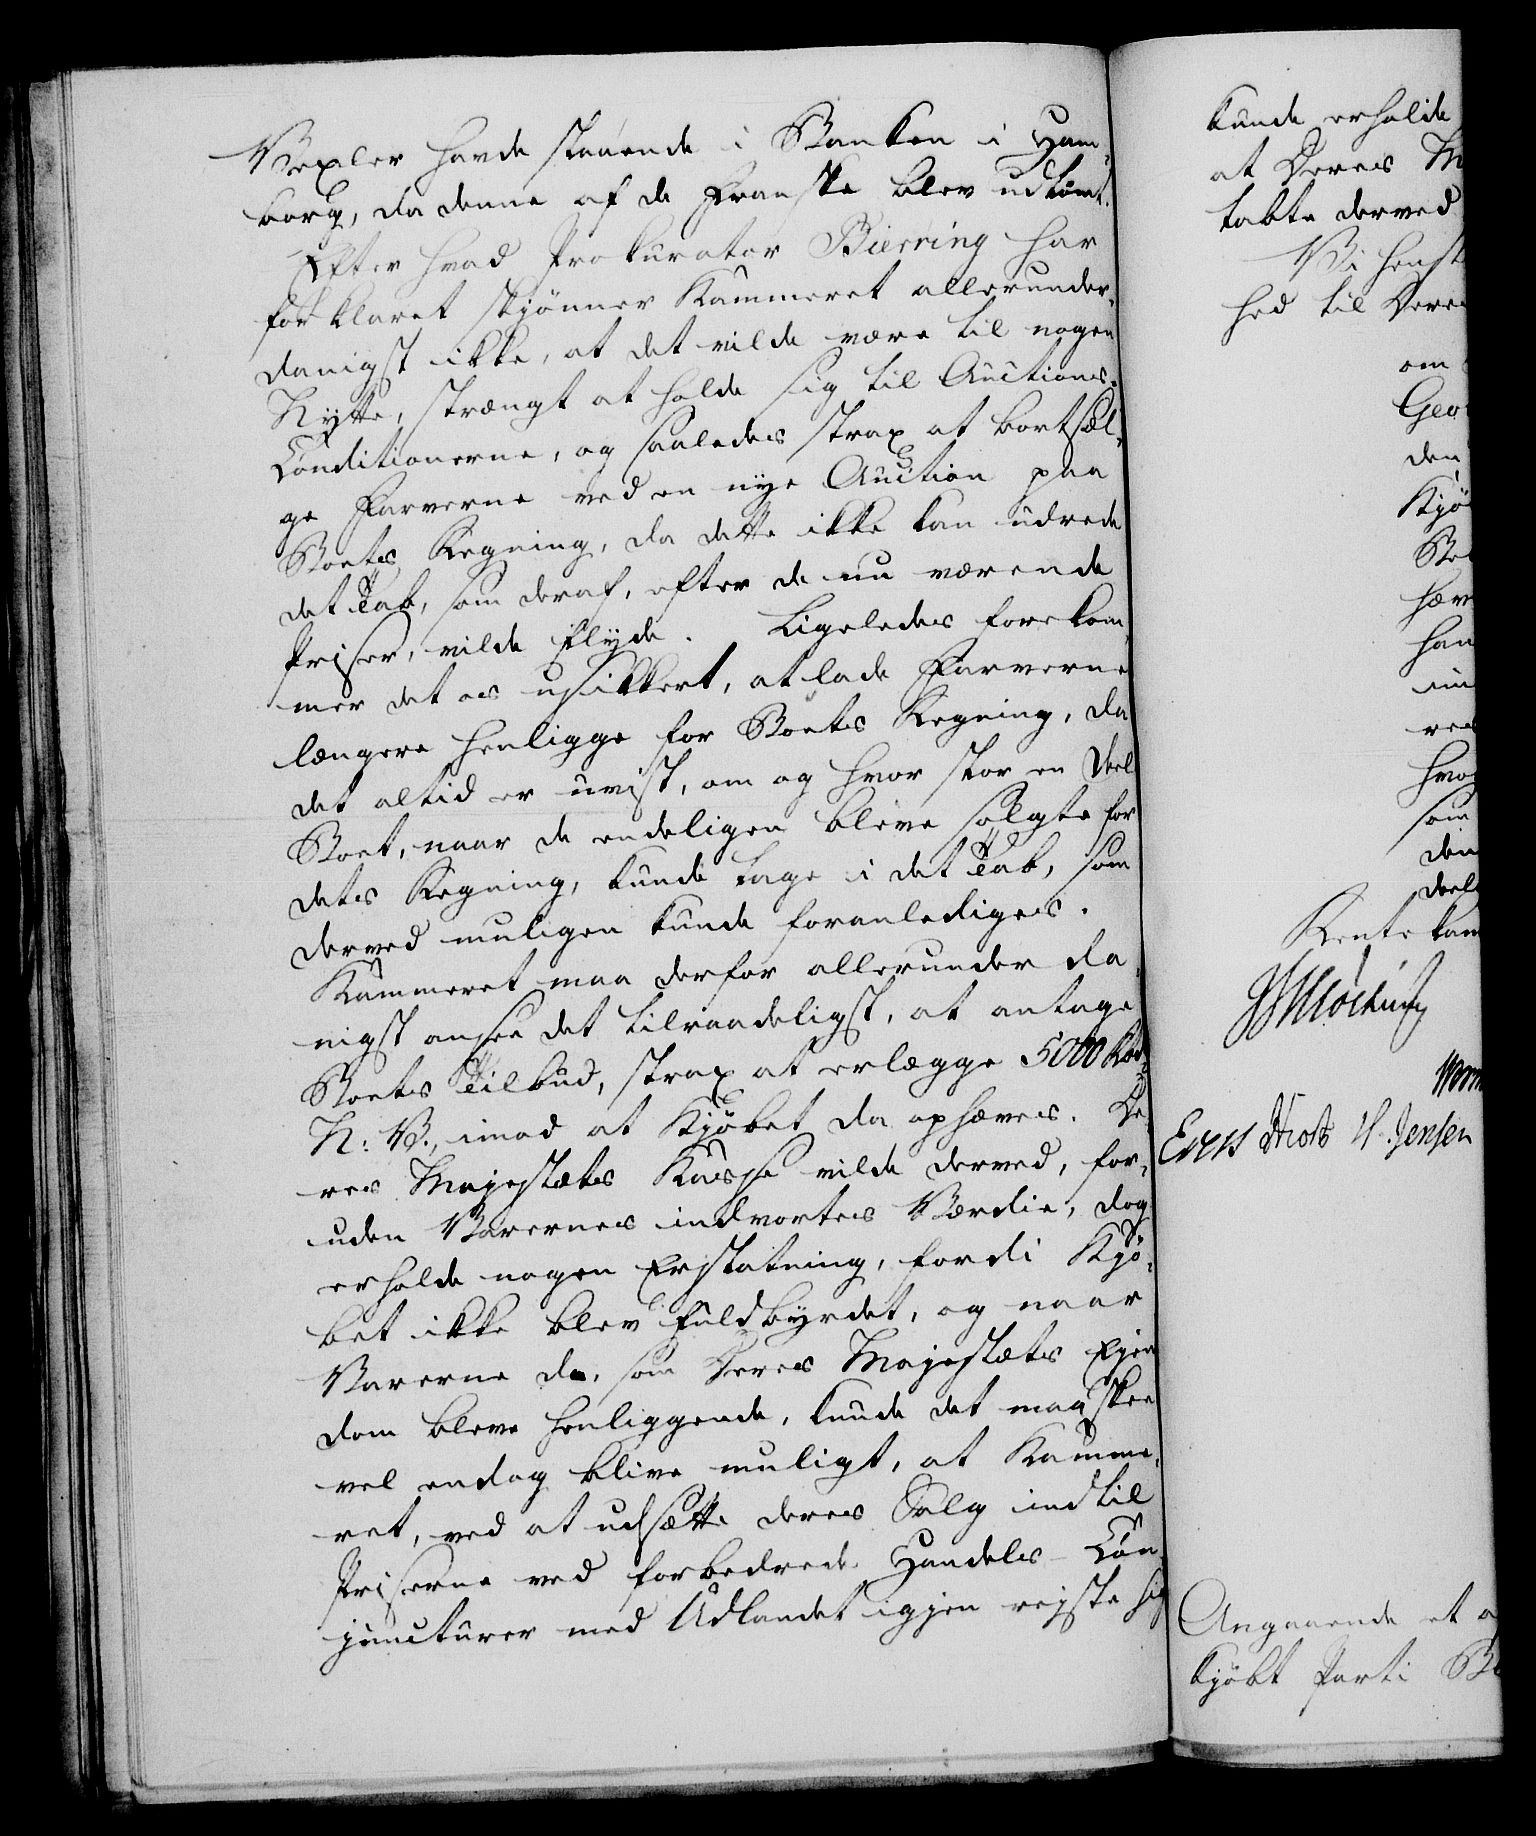 Vexler havde staaende i Banken i Ham-
borg, da denne af de Franske blev udtömt.
Efter hvad Prokurator Bierring har
forklaret skjönner Kammeret allerunder-
danigst ikke, at det vilde være til nogen
Nytte, strængt at holde sig til Auctions-
Conditionerne, og saaledes strax at bortsæl-
ge Farverne ved en nye Auction paa
Boets Regning, da dette ikke kan udrede
det Tab, som deraf, efter de nu værende
Priser, vilde flyde. Ligeledes forekom
mer det os usikkert, at lade Farverne
længere henligge for Boets Regning, da
det altid er uvist, om og hvor stor en Deel
Boet, naar de endeligen bleve solgte for
dets Regning, kunde tage i det Tab, som
derved muligen kunde foranlediges.
Kammeret maa derfor allerunder da-
nigst ansee det tilraadeligst, at antage
Boets Tilbud, strax at erlægge 5000 Rbd
N: V., imod at Kjöbet da ophæves. De
res Majestæts Kasse vilde derved, for-
uden Varernes indvortes Værdie, dog
erholde nogen Erstatning, fordi Kjö-
bet ikke blev fuldbyrdet, og naar
Varerne da, som Deres Majestæts Ejen
dom bleve henliggende, kunde det maaskee
vel endog blive muligt, at Kamme-
ret, ved at udsætte deres Salg indtil
Priserne ved forbedrede Handels-Con-
juncturer med Udlandet igjen rejste sig
kunde erholde
at Deres M
tabte derved
Vi henst
hed til Dere
om
Geo
den
Kjö
Bo
hæv
han
ind
res
hvo
som
den
deel
Rentekam
Mösting
Worm
Host H. Jensen
Angaaende et a
kjöbt Parti B